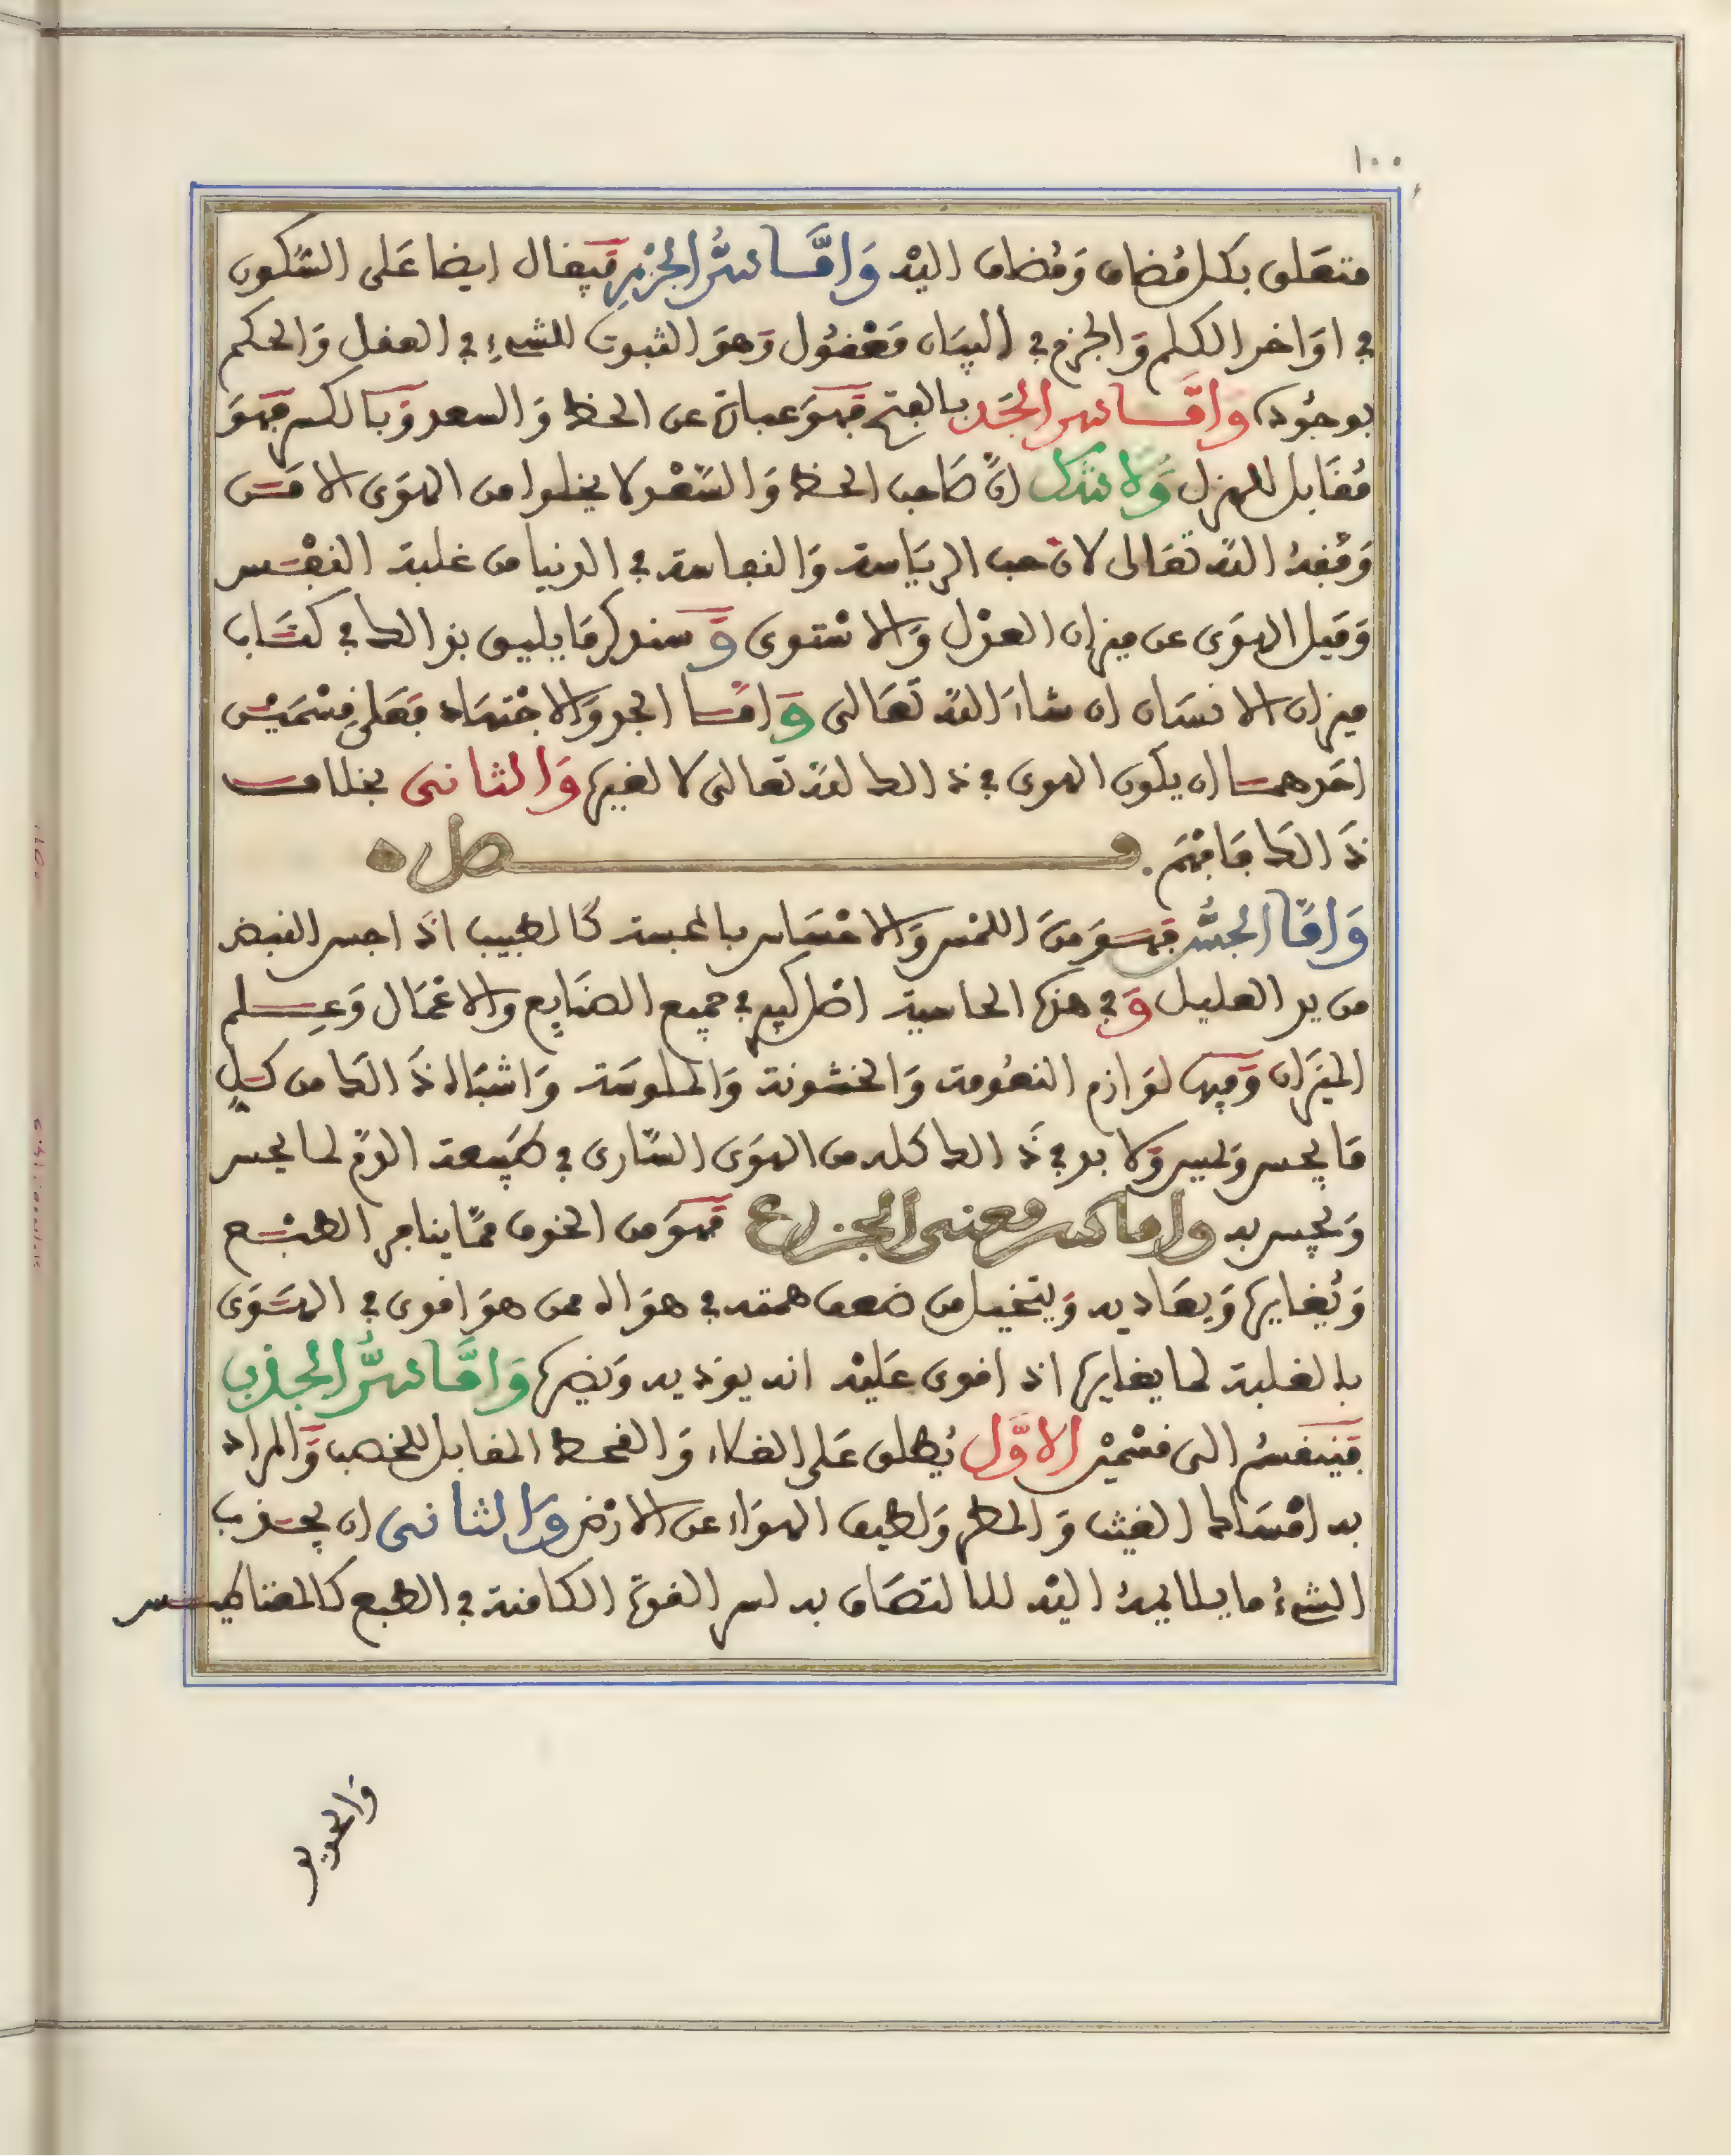 ١٠٠
متعلق بكل مُضاف وَمُضاف اليْه وَامَّا سرُّ الجزْمِ فَيقال ايضا عَلى السّكون
في اوَاخر الكلم وَالجزم في البيَان مَعْقُول وَهوَ الثبوت للشيءِ في العقل وَالحكم
بوجُوده وَامَّا سر الجَد بالفتح فَهوَ عبارة عن الحظ وَالسعد وَبالكسر فهوَ
مُقَابل للهزل وَلا شك انَّ صَاحب الحظ وَالسَّعْد لا يخلوا من الهوَى الا مَن
وَفّقهُ اللّه تعَالى لان حب الريَاسة وَالنفاسة في الدنيا من غلبة النفْس
وَميل الهوَى عن ميزان العدْل وَالاسْتوى وَسنذكر مَا يليق بذالك في كتَاب
ميزان الانسَان ان شاءَ اللّه تعَالى وَامّا الجد وَالاجْتهَاد فعَلى قسْمَيْن
احَدهما ان يكون الهوى في ذالك لله تعالى لا لغيره وَالثانى بخلاف
ذَالكَ فَافْهَم . فصل ه
وَامَّا الجسُّ فهوَ منَ اللمْس وَالاحْسَاس بالمجسة كَالطبيب اذَا جس النبض
من يد العليل وَفي هذه الحاسية اصْل كبير في جميع الصنَايع وَالاعْمَال وَعِلم
الميزَان وَفيه لوَازم النعُومة وَالخشونة وَالملوسَة وَاشبَاه ذَالكَ من كلِّ
مَا يحس وَيجس وَلا بد في ذَالك كله من الهوَى السّارى في طبيعة الدّم لما يحس
وَيجس به وامّا سر معنى الجزع فهوَ من الخوف ممّا ينافر الطبْع
وَيُغايره وَيعَاديه وَيتخيل من ضعف همته في هوَاه ممن هوَ اقوى في الهَوَى
بالغلبة لما يغايره اذ اقوى عَليْه انه يوذيه وَيضره وَامَّا سرُّ الجذب
فَينقسمُ الى قسْميْن الاوَّل يُطلق عَلى الغلاء وَالقحط المقابل للخصب وَالمراد
به امْسَاك الغيث وَالمطر وَلطيف الهوَاء عن الارْض وَالثانى ان يجذب
الشيءُ ما يلايمهُ اليْه للالتصَاق به لسر القوة الكامنة في الطبع كالمغناطيس
وَالحديد